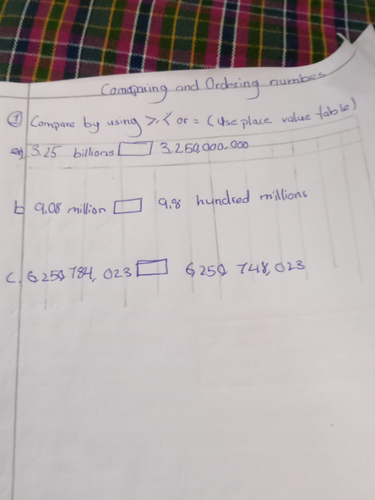 Comparing and Ordering numbers
① Compare by using >, < or = (Use place value table)
a) 3.25 billions □ 3,250,000,000
b 9.08 million □ 9.8 hundred millions
c. 6,250,784,023 □ 6,250,748,023